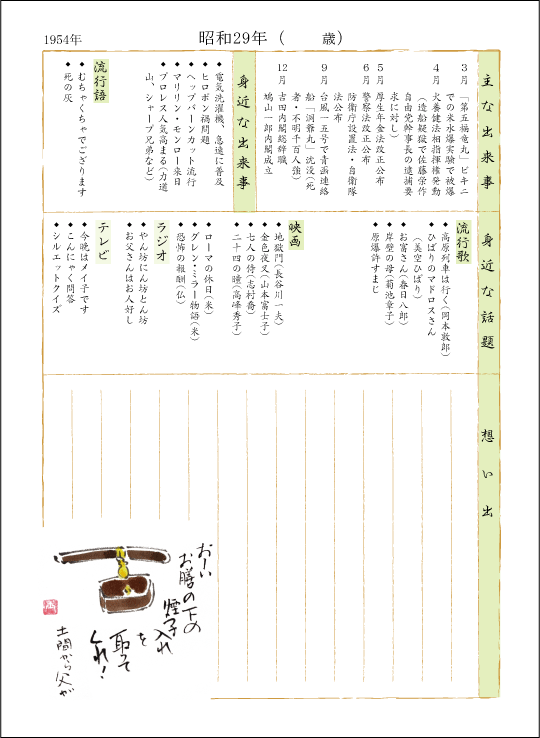 1954年
昭和29年（　　歳）
主な出来事
3月 「第五福竜丸」ビキニ
での水爆実験で被爆
4月 犬養健法相指揮権発動
（造船疑獄で佐藤栄作
自由党幹事長の逮捕要
求に対し）
5月 厚生年金法改正公布
6月 警察法改正公布
防衛庁設置法・自衛隊
法公布
9月 台風一五号で青函連絡
船「洞爺丸」沈没（死
者・不明千百人強）
12月 吉田内閣総辞職
鳩山一郎内閣成立
身近な出来事
◆電気洗濯機、急速に普及
◆ヒロポン禍問題
◆ヘップバーンカット流行
◆マリリン・モンロー来日
◆プロレス人気高まる（力道
山、シャープ兄弟など）
流行語
◆むちゃくちゃでござります
◆死の灰
身近な話題
流行歌
◆高原列車は行く（岡本敦郎）
◆ひばりのマドロスさん
（美空ひばり）
◆お富さん（春日八郎）
◆岸壁の母（菊池章子）
◆原爆許すまじ
映画
◆地獄門（長谷川一夫）
◆金色夜叉（山本富士子）
◆七人の侍（志村喬）
◆二十四の瞳（高峰秀子）
◆ローマの休日（米）
◆グレン・ミラー物語（米）
◆恐怖の報酬（仏）
ラジオ
◆やん坊にん坊とん坊
◆お父さんはお人好し
テレビ
◆今晩はメイ子です
◆こんにゃく問答
◆シルエットクイズ
想い出
おーい
お膳の下の
煙草入れ
を
取って
くれ！
土間から父が